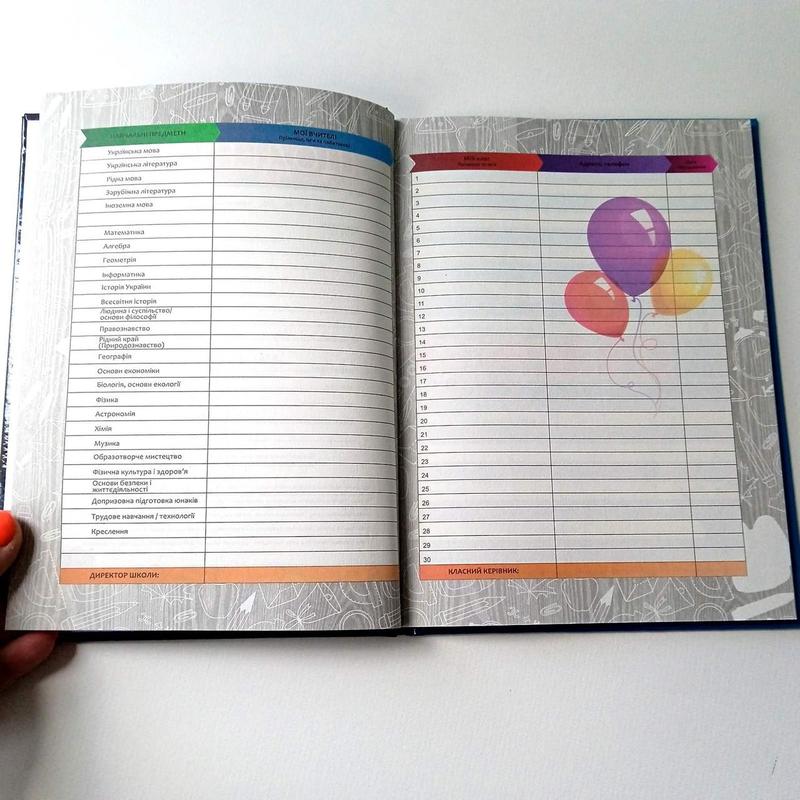 НАВЧАЛЬНІ ПРЕДМЕТИ
МОЇ ВЧИТЕЛІ
Прізвище, ім'я та по батькові
Українська мова
Українська література
Рідна мова
Зарубіжна література
Іноземна мова
Математика
Алгебра
Геометрія
Інформатика
Історія України
Всесвітня історія
Людина і суспільство/
основи філософії
Правознавство
Рідний край
(Природознавство)
Географія
Основи економіки
Біологія, основи екології
Фізика
Астрономія
Хімія
Музика
Образотворче мистецтво
Фізична культура і здоров'я
Основи безпеки і
життєдіяльності
Допризовна підготовка юнаків
Трудове навчання / технології
Креслення
ДИРЕКТОР ШКОЛИ:
Мій клас
Адреса, телефон
1
2
3
4
5
6
7
8
9
10
11
12
13
14
15
16
17
18
19
20
21
22
23
24
25
26
27
28
29
30
КЛАСНИЙ КЕРІВНИК: